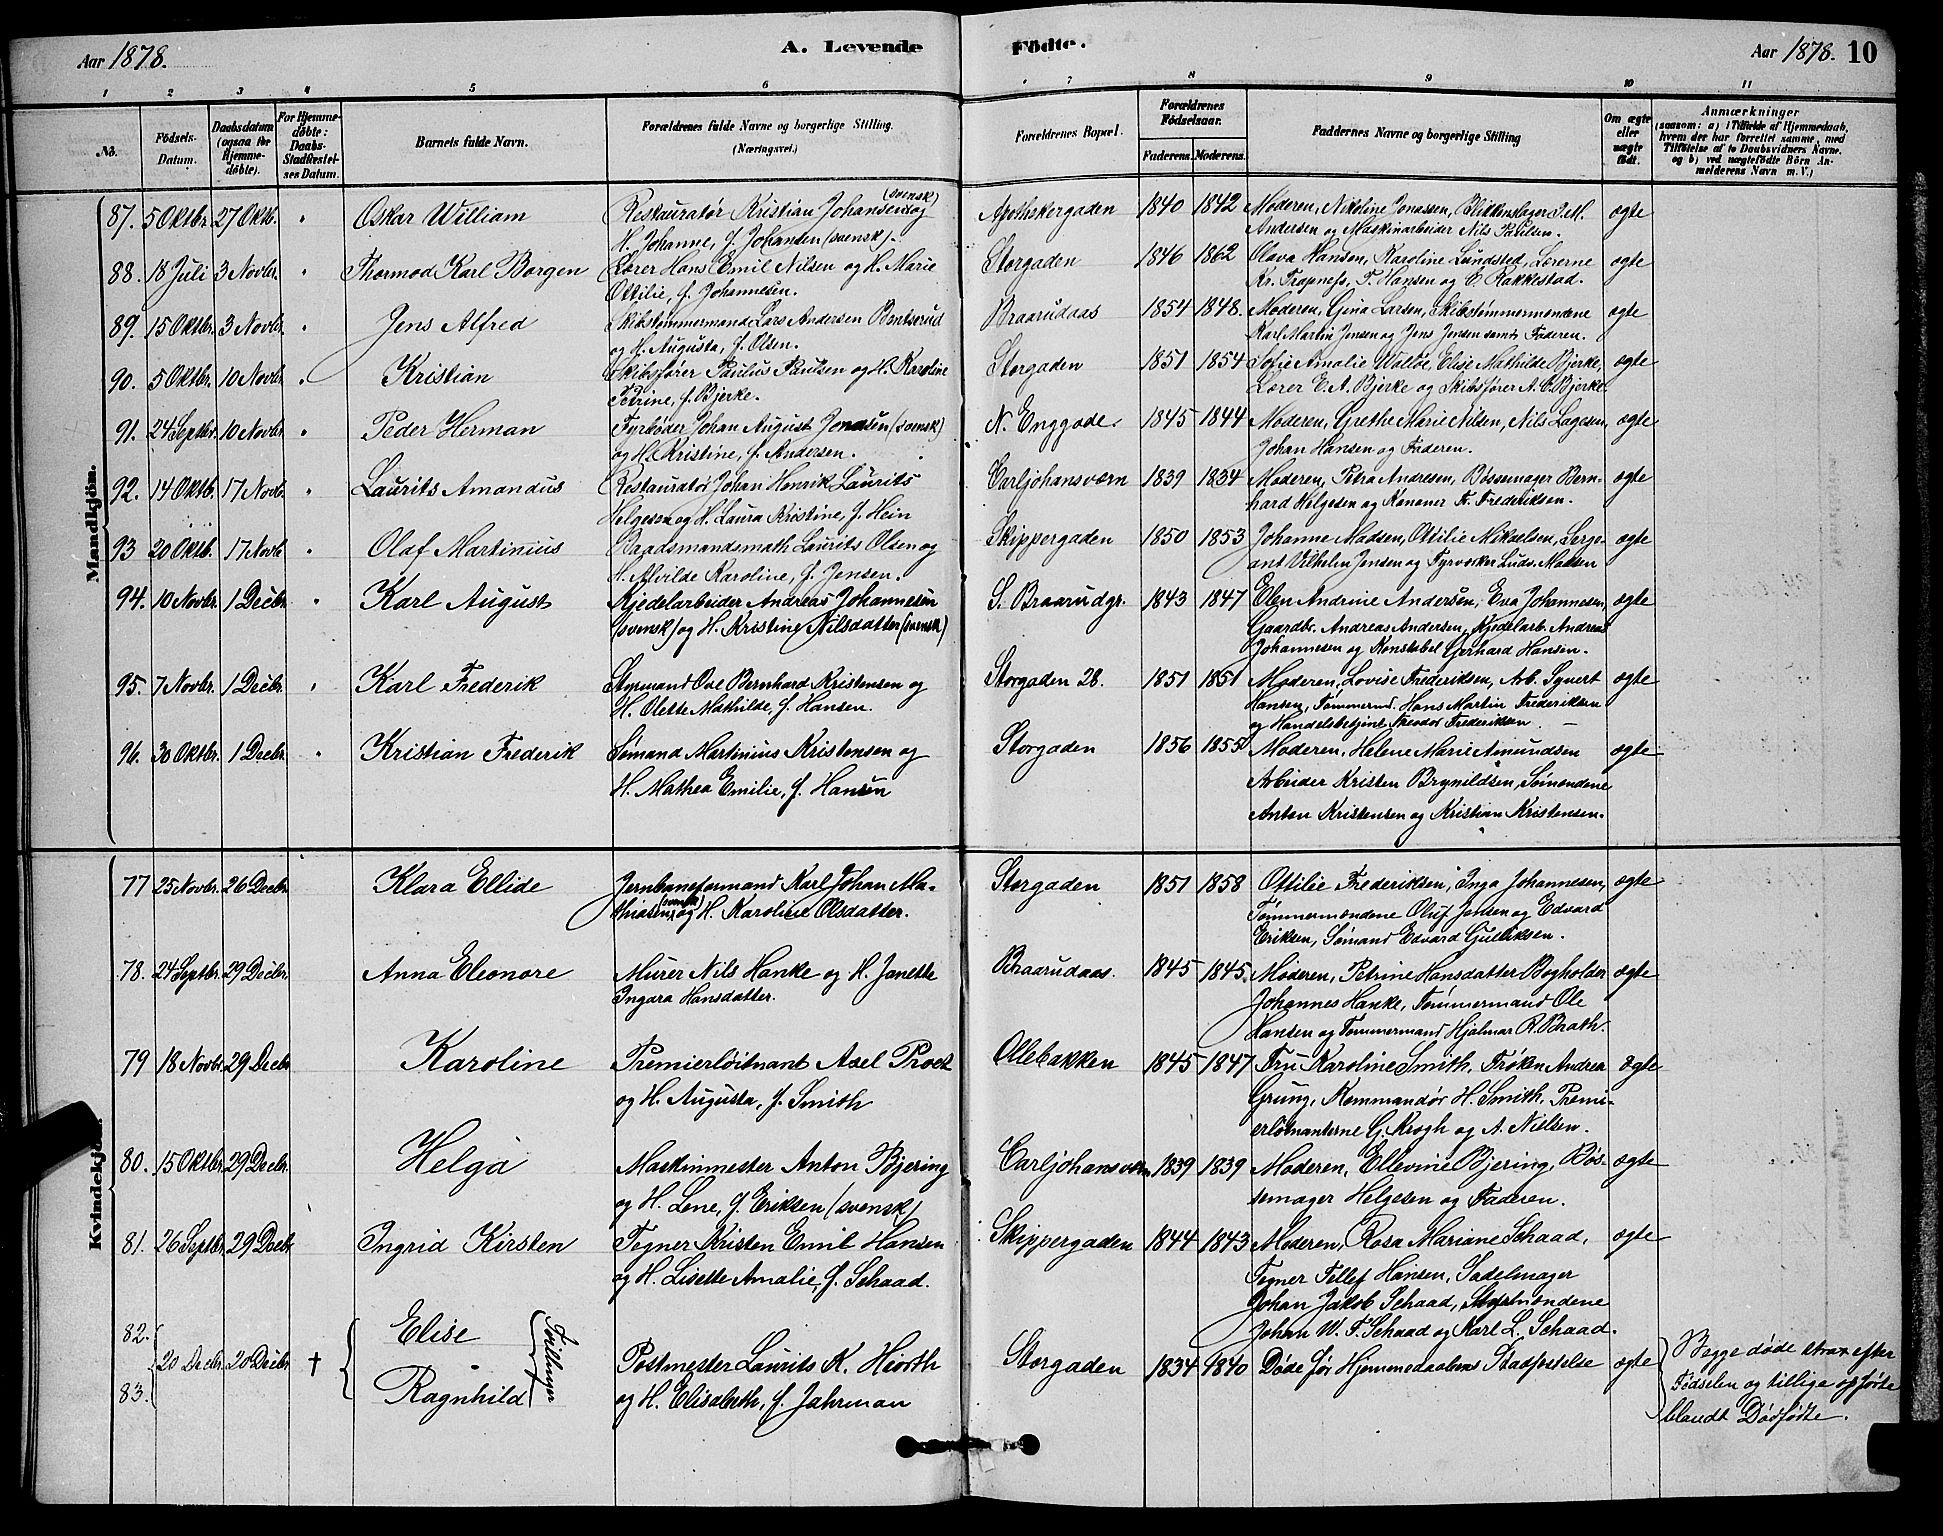 Aar 1878. A. Levende Fødte. Aar 1878. 10
1 2 3 4 5 6 7 8 9 10 11
No. Fødsels-Datum. Daabsdatum (ogsaa for Hjemmedøbte). For Hjemmedøbte: Daabs-Stadfæstelses Datum. Barnets fulde Navn. Forældrenes fulde Navne og borgerlige Stilling. (Næringsvei.) Forældrenes Bopæl. Forældrenes Fødselsaar. Faderens. Moderens. Faddernes Navne og borgerlige Stilling Om ægte eller uægte født. Anmærkninger (saasom: a) i Tilfælde af Hjemmedaab, hvem der har forrettet samme, med Tilføielse af to Daabsvidners Navne. og b) ved uægtefødte Börn Anmelderens Navn m. V.)
Mandkjön.
87. 5 Oktbr. 27 Oktb. " Oskar William Restauratør Kristian Johansen (svensk) og Apothekergaden 1840 1842 Moderen, Nikoline Jonassen, Blikkenslager J. M. ægte
H. Johanne, f. Johansen (svensk). Andersen og Maskinarbeider Nils Paulsen.
88. 18 Juli 3 Novbr. " Thormod Karl Borgen Lærer Hans Emil Nilsen og H. Marie Storgaden 1846 1862 Olava Hansen, Karoline Lundsted, Lærerne ægte
Ottilie, f. Johannesen. Kr. Trapnefs, T. Hansen og C. Rakkestad.
89. 15 Oktbr. 3 Novbr. " Jens Alfred Skibstømmermand Lars Andersen Berntsrud Braarudaas 1854 1848. Moderen, Gina Larsen, Skibstømmermændene ægte
og H. Augusta, f. Olsen. Karl Martin Jensen og Jens Jensen samt Faderen.
90. 5 Oktbr. 10 Novbr. " Kristian Skibsfører Paulus Paulsen og H. Karoline Storgaden 1851 1854 Sofie Amalie Walløe, Elise Mathilde Bjerke, ægte
Petrine, f. Bjerke. Lærer E. A. Bjerke og Skibsfører A. C. Bjerke
91. 24 Septbr. 10 Novbr. " Peder Herman Fyrbøder Johan August Jonasen (svensk) N. Enggade. 1845 1844 Moderen, Grethe Marie Nilsen, Nils Lagesen, ægte
og H. Kristine, f. Andersen. Johan Hansen og Faderen.
92. 14 Oktb. 17 Novb. " Laurits Amandus Restauratør Johan Henrik Laurits Carljohansværn 1839 1834 Moderen, Petra Andresen, Bøssemager Bern- ægte
Helgesen og H. Laura Kristine, f. Hein hard Helgesen og Kanoner K. Frederiksen.
93 20 Oktb. 17 Novb " Olaf Martinius Baadsmandsmath Laurits Olsen og Skippergaden 1850 1853 Johanne Madsen, Ottilie Mikaelsen, Serge- ægte
H. Alvilde Karoline, f. Jensen. ant Vilhelm Jensen og Fyrværker Ludv. Madsen
94. 10 Novbr. 1 Decbr. " Karl August Kjedelarbeider Andreas Johannesen S. Braarudgr. 1843 1847 Elen Andrine Andersen, Eva Johannesen, ægte
(svensk) og H. Kristine Nilsdatter (svensk) Gaardbr. Andreas Andersen, Kjedelarb. Andreas
Johannesen og Konstabel Gerhard Hansen.
95. 7 Novbr. 1 Decbr. " Karl Frederik Styrmand Ove Bernhard Kristensen og Storgaden 28. 1851 1851 Moderen, Lovise Frederiksen, Arb. Syvert ægte
H. Olette Mathilde, f. Hansen. Hansen, Tømmerm. Hans Martin Frederiksen
og Handelsbetjent Theodor Frederiksen. —
96. 30 Oktbr. 1 Decbr. " Kristian Frederik Sømand Martinius Kristensen og Storgaden 1856 1855 Moderen, Helene Marie Amundsen ægte
H. Mathea Emilie, f. Hansen Arbeider Kristen Brynildsen, Sømændene
Anton Kristensen og Kristian Kristensen.
Kvindekjön.
77 25 Novbr. 26 Decbr. Klara Ellide Jernbaneformand Karl Johan Ma- Storgaden 1851 1858 Ottilie Frederiksen, Inga Johannesen, ægte
thiasen (svensk) og H. Karoline Olsdatter. Tømmermændene Oluf Jensen og Edvard
Eriksen, Sømand Edvard Gulliksen.
78. 24 Septbr. 29 Decbr. Anna Eleonore Murer Nils Hanke og H. Janette Braarudaas. 1845 1845. Moderen, Petrine Hansdatter Bogholder ægte
Ingara Hansdatter. Johannes Hanke, Tømmermand Ole
Hansen og Tømmermand Hjalmar R. Brath.
79 18 Novbr. 29 Decbr Karoline Premierløitnant Axel Proet Ollebakken 1845 1847 Fru Karoline Smith, Frøken Andrea ægte
og H. Augusta, f. Smith Grung, Kommandør H. Smith, Premi-
erløitnanterne G. Krogh og A. Nielsen.
80. 15 Oktbr. 29 Decbr. Helga Maskinmester Anton Bjering Carljohansværn 1839 1839 Moderen, Ellevine Bjering, Bøs- ægte
og H. Lene, f. Eriksen (svensk) semager Helgesen og Faderen.
81. 26 Septbr. 29 Decbr Ingrid Kirsten Tegner Kristen Emil Hansen Skippergaden 1844 1843 Moderen, Rosa Mariane Schaad, ægte
og H. Lisette Amalie, f. Schaad. Tegner Tellef Hansen, Sadelmager
Johan Jakob Schaad, Styrmændene
82. Elise Johan W. F. Schaad og Karl L. Schaad.
20 Decbr. 20 Decbr † Tvillinger Postmester Laurits K. Hiorth Storgaden 1834 1840 Døde før Hjemmedaabens Stadfæstelse ægte Begge døde strax efter
83. Ragnhild og H. Elisabeth, f. Jahrman Fødselen og tillige opførte
blandt Dødfødte.